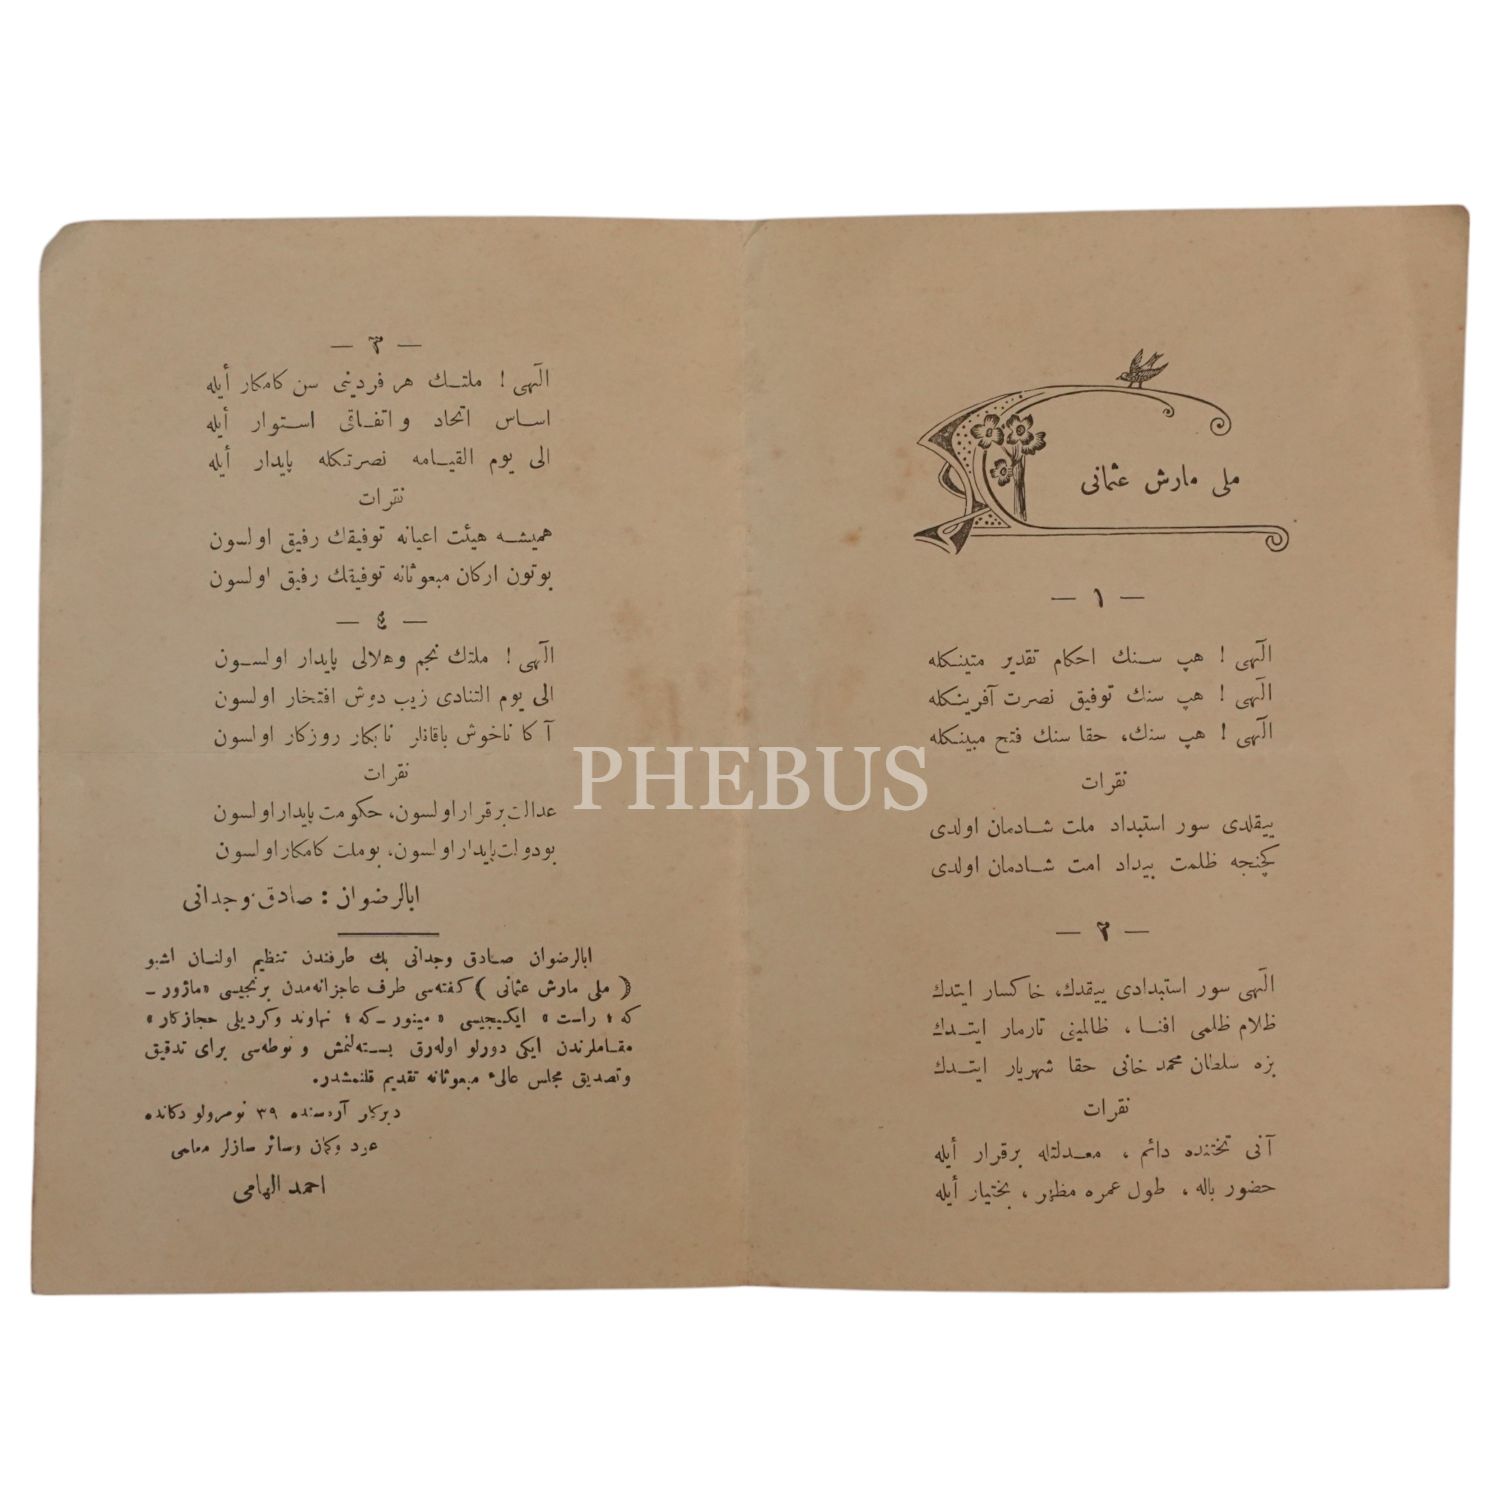 ملی مارش عثمانی
— ١ —
الٓهی ! هپ سنك احكام تقدیر متینكله
الٓهی ! هپ سنك توفیق نصرت آفرینكله
الٓهی ! هپ سنك، حقا سنك فتح مبینكله
نقرات
ییقلدی سور استبداد ملت شادمان اولدی
كچنجه ظلمت بیداد امت شادمان اولدی
— ٢ —
الٓهی سور استبدادی ییقدك، خاكسار ایتدك
ظلام ظلمی افنا ، ظالمینی تارمار ایتدك
بزه سلطان محمد خانی حقا شهریار ایتدك
نقرات
آنی تختنده دائم ، معدلتله برقرار أیله
حضور باله ، طول عمره مظهر ، بختیار أیله
— ٣ —
الٓهی ! ملتك هر فردینی سن كامكار أیله
اساس اتحاد و اتفاقی استوار أیله
الی یوم القیامه نصرتكله پایدار أیله
نقرات
همیشه هیئت اعیانه توفیقك رفیق اولسون
بوتون اركان مبعوثانه توفیقك رفیق اولسون
— ٤ —
الٓهی ! ملتك نجم وهلالی پایدار اولسون
الی یوم التنادی زیب دوش افتخار اولسون
آكا ناخوش باقانلر نابكار روزكار اولسون
نقرات
عدالت برقرار اولسون، حكومت پایدار اولسون
بودولت پایدار اولسون، بوملت كامكار اولسون
ابالرضوان : صادق وجدانی
ابالرضوان صادق وجدانی بك طرفندن تنظیم اولنان اشبو
( ملی مارش عثمانی ) كفته‌سی طرف عاجزانه‌مدن برنجیسی «ماژور ـ
كه ؛ راست» ایكیجیسی «مینور ـ كه ؛ نهاوند وكردیلی حجازكار»
مقاملرندن ایكی دورلو اوله‌رق بسته‌لنمش و نوطه‌سی برای تدقیق
وتصدیق مجلس عالیٔ مبعوثانه تقدیم قلنمشدر.
دیركلر آره‌سنده ٣٩ نومرولو دكانده
عود وكمان وسائر سازلر معلمی
احمد الهامی
PHEBUS